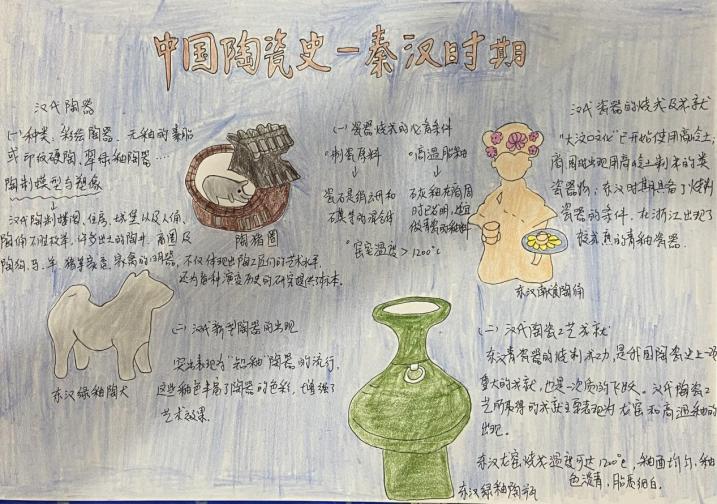 中国陶瓷史-秦汉时期
汉代陶器
(一)种类：彩绘陶器、无釉的素胎
或印纹硬陶、翠绿釉陶器……
陶制模型与塑像
↓
汉代陶制楼阁、住房、城堡以及人俑、
陶俑不胜枚举，许多出土的陶井、畜圈及
陶狗、马、羊、猪等家畜、家禽的明器，不仅体现出陶工匠们的艺术水平，
还为各种演变历史的研究提供了标本。
陶猪圈
(一)瓷器烧成的必备条件
°制瓷原料
↓
瓷石是绢云母和
石英等的混合体
°高温胎釉
↓
石灰釉在商周
时已发明，
°窑室温度>1200℃
汉代瓷器的烧成及成就
"大汶口文化"已开始使用高岭土，
商周时出现用高岭土制成的类
瓷器物，东汉时期具备了烧制
瓷器的条件，在浙江出现了
较成熟的青釉瓷器.
东汉献食陶俑
东汉绿釉陶犬
(二)汉代新型陶器的出现
突出表现为"铅釉"陶器的流行，
这些釉色丰富了陶器的色彩，增强了
艺术效果.
东汉绿釉陶瓶
(二)汉代陶瓷工艺成就
东汉青瓷器的烧制成功，是中国陶瓷史上一项
重大的成就，也是一次质的飞跃。汉代陶瓷工
艺所取得的成就主要表现为龙窑和高温釉的
出现。
东汉龙窑烧成温度可达1200℃，釉面均匀，釉
色淡青，胎质细白。